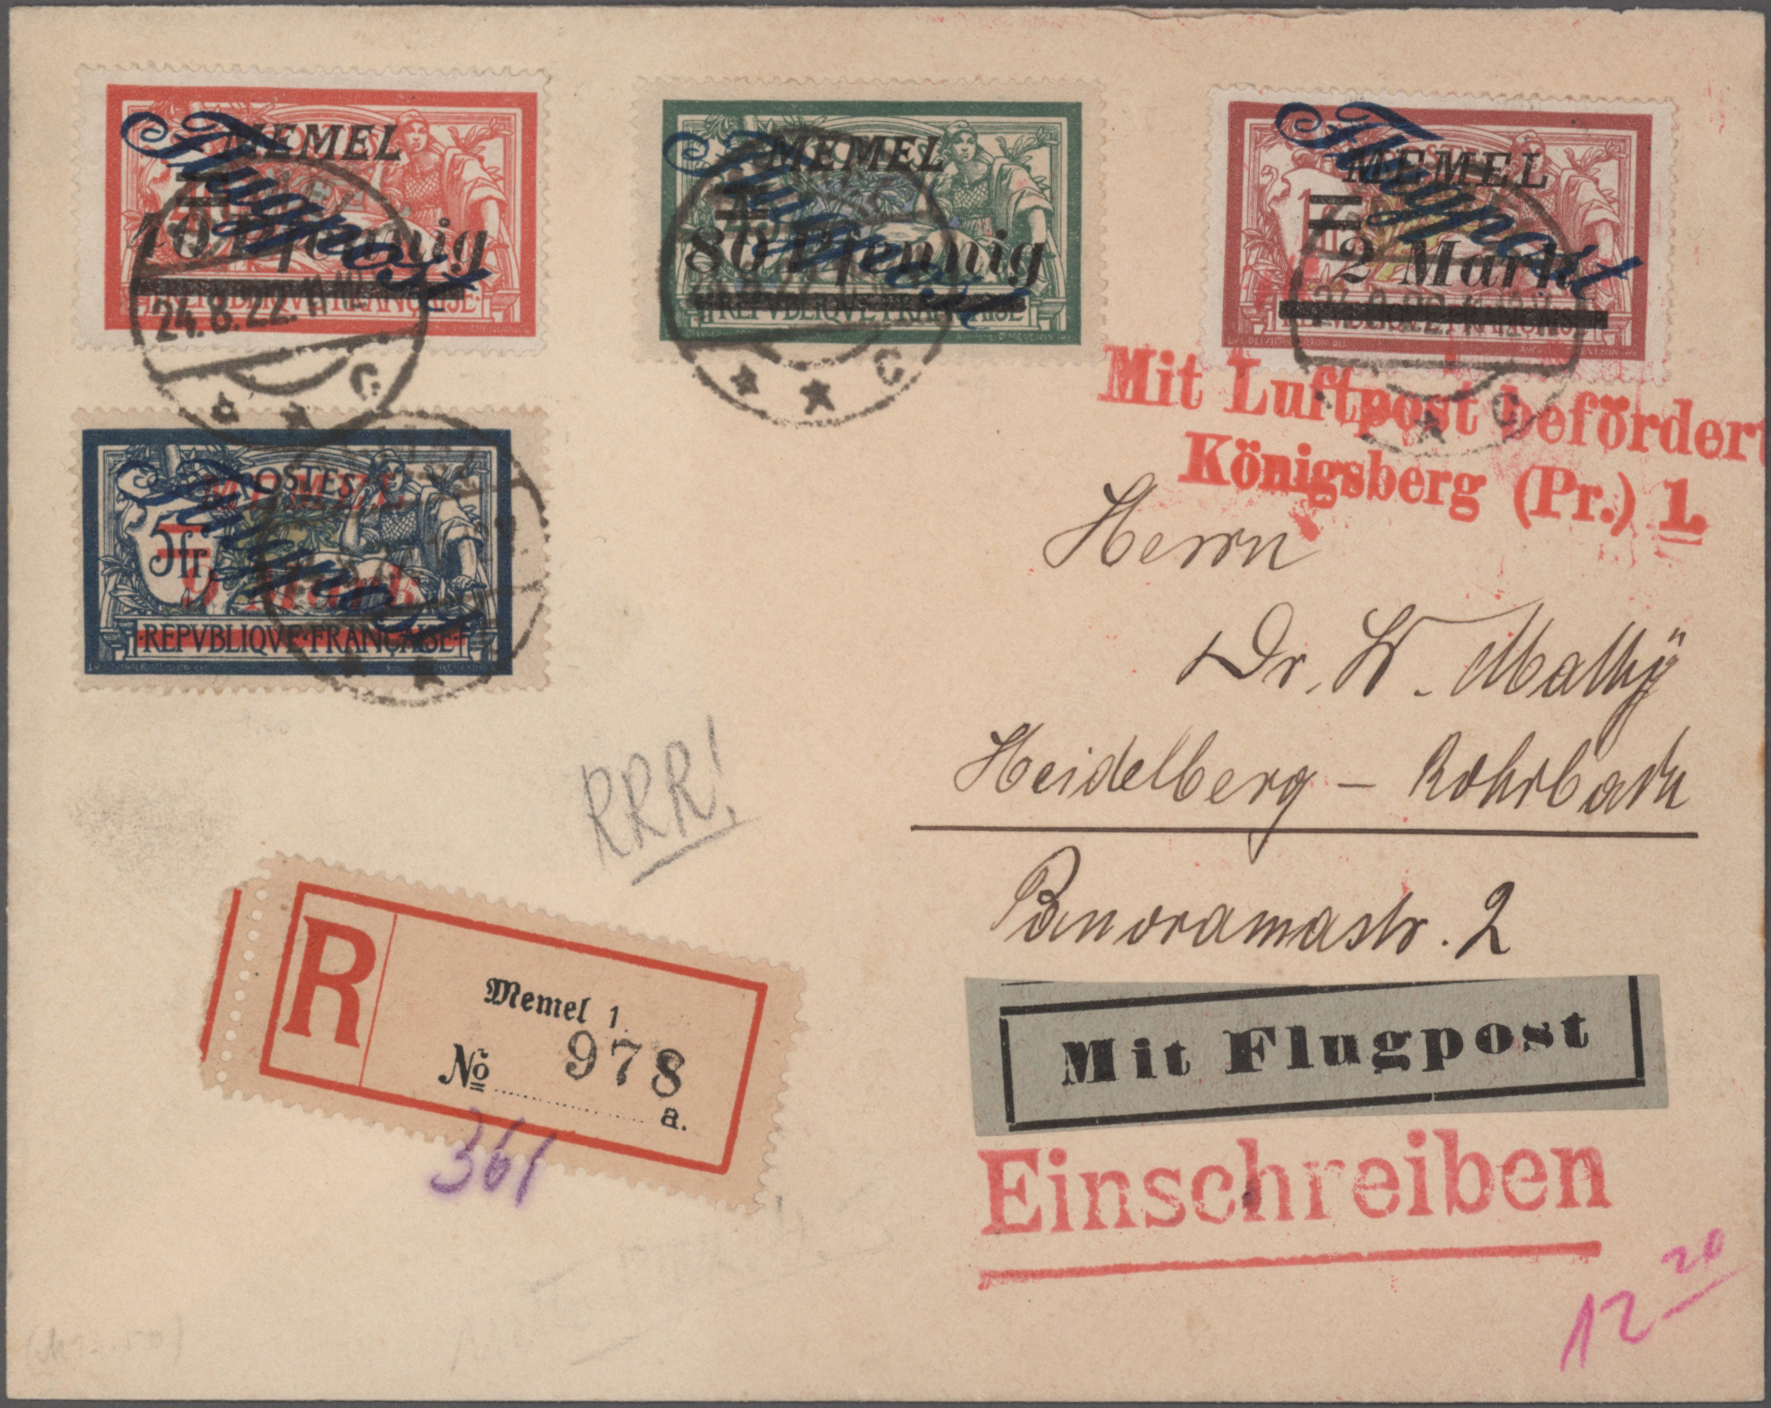 MEMEL
Flugpost
40 Pfennig
REPVBLIQVE FRANÇAISE
24.8.22. 11-12
C
MEMEL
Flugpost
80 Pfennig
REPVBLIQVE FRANÇAISE
C
MEMEL
Flugpost
2 Mark
REPVBLIQVE FRANÇAISE
C
Mit Luftpost befördert
Königsberg (Pr.) 1.
POSTES
MEMEL
Flugpost
5 fr.
9 Mark
REPVBLIQVE FRANÇAISE
Herrn
Dr. W. Malthy
Heidelberg - Rohrbach
Panoramastr. 2
RRR!
R
Memel 1
No 978
a.
361
Mit Flugpost
Einschreiben
12 20